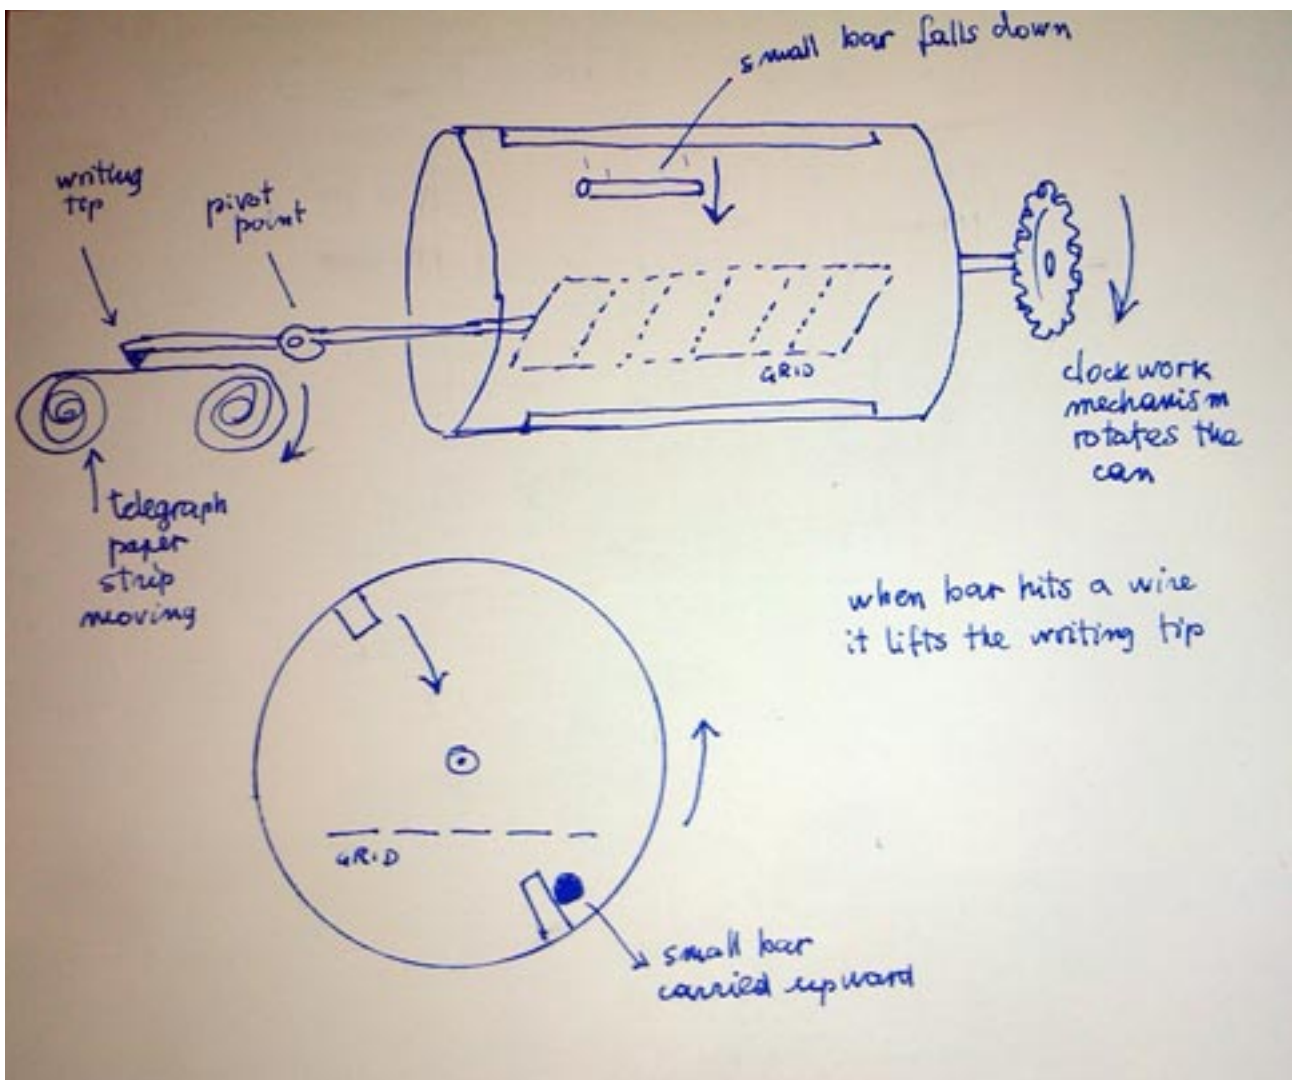 small bar falls down
writing
tip
pivot
point
GRID
clockwork
mechanism
rotates the
can
telegraph
paper
strip
moving
when bar hits a wire
it lifts the writing tip
GRID
small bar
carried upward